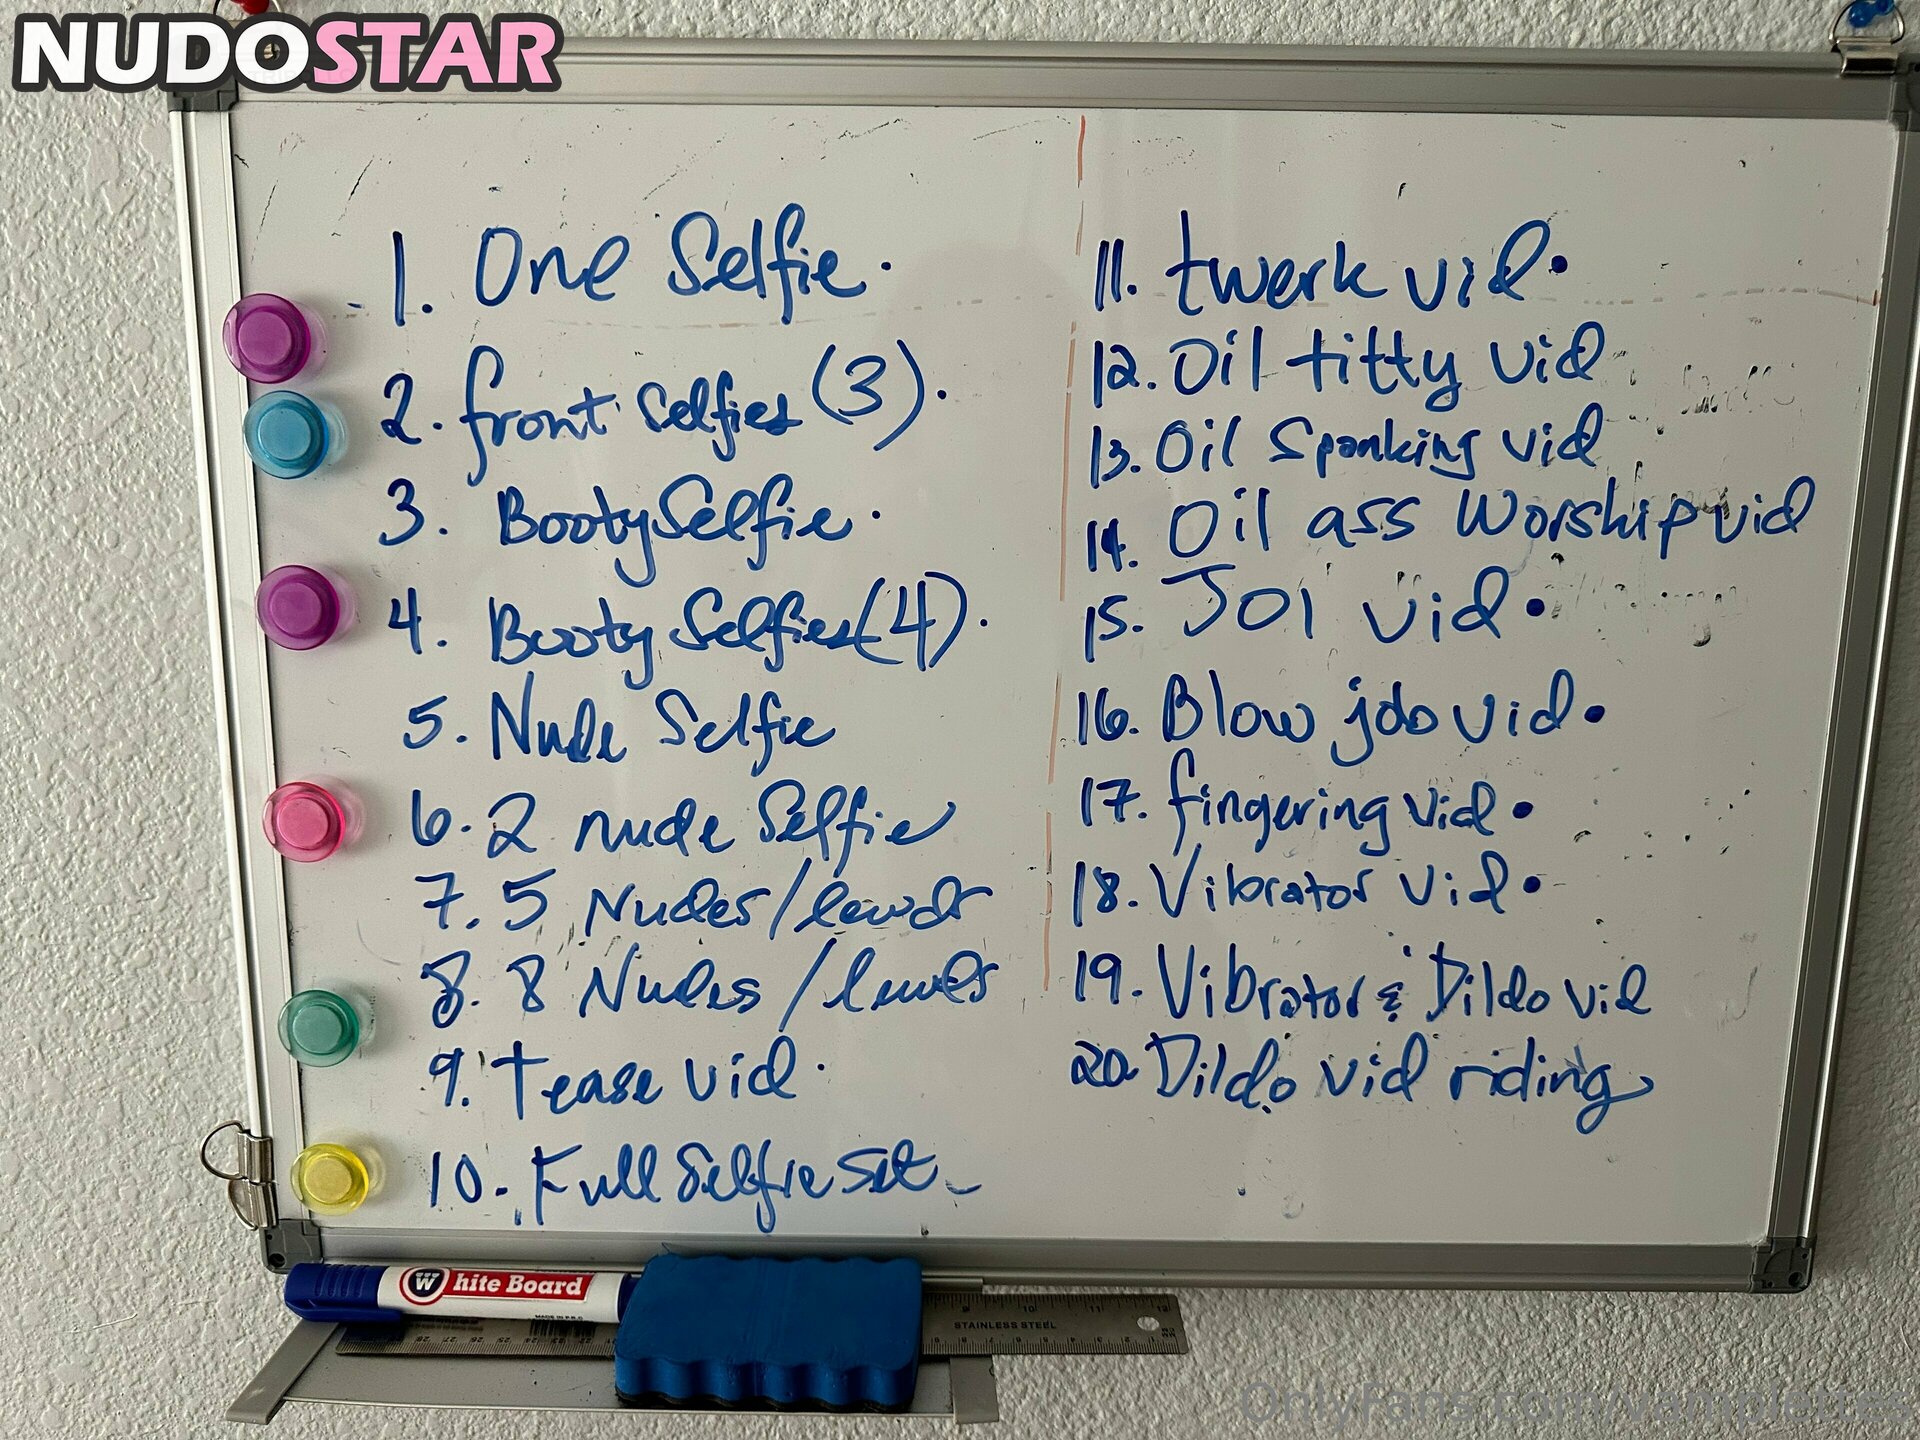 NUDOSTAR
1. One Selfie.
2. front selfies (3).
3. Booty Selfie.
4. Booty Selfies (4).
5. Nude Selfie
6. 2 nude Selfie
7. 5 Nudes/lewds
8. 8 Nudes/lewds
9. Tease vid.
10. Full Selfie Set
11. twerk vid.
12. Oil titty vid
13. Oil Spanking vid
14. Oil ass Worship vid
15. JOI vid.
16. Blow job vid.
17. fingering vid.
18. Vibrator vid.
19. Vibrator & Dildo vid
20. Dildo vid riding
White Board
MADE IN P.R.C
STAINLESS STEEL
OnlyFans.com/vamplettes